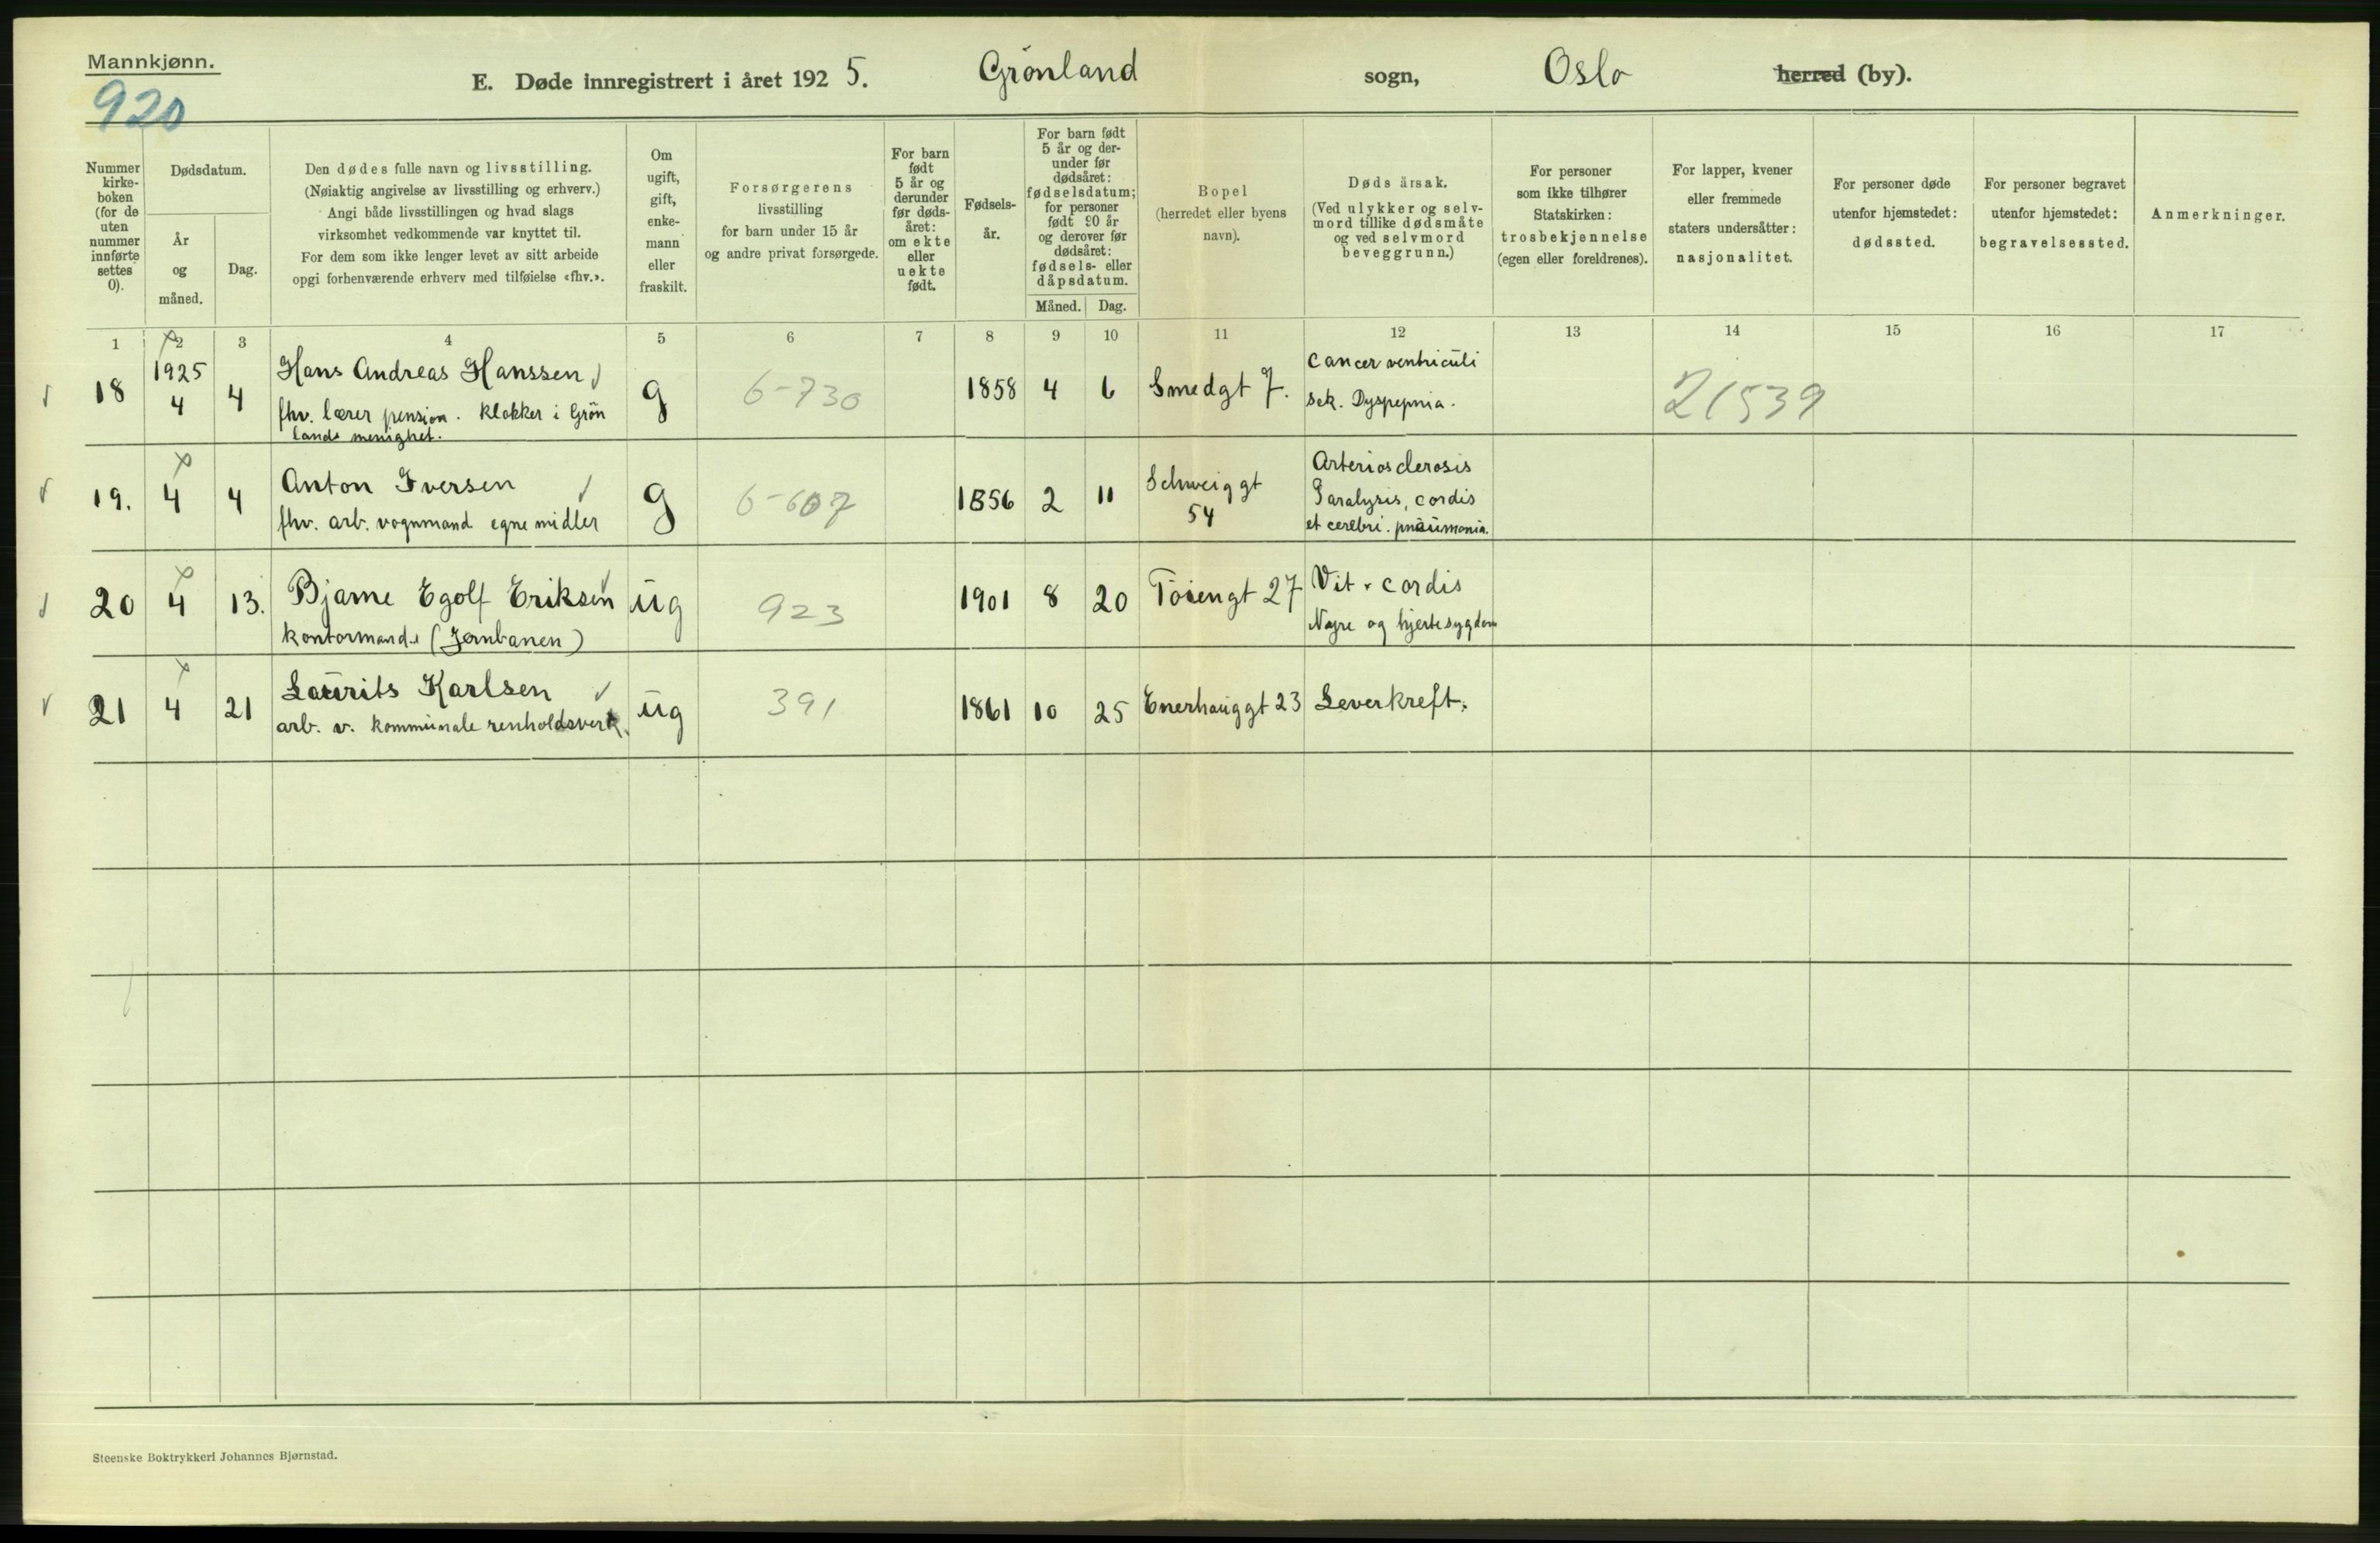 Mannkjønn.
920
E. Døde innregistrert i året 1925. Grönland sogn, Oslo herred (by).
Nummer kirke-boken (for de uten nummer innførte settes 0).
Dødsdatum.
År og måned.
Dag.
Den dødes fulle navn og livsstilling.
(Nøiaktig angivelse av livsstilling og erhverv.)
Angi både livsstillingen og hvad slags
virksomhet vedkommende var knyttet til.
For dem som ikke lenger levet av sitt arbeide
opgi forhenværende erhverv med tilføielse «fhv.».
Om ugift, gift, enke-mann eller fraskilt.
Forsørgerens
livsstilling
for barn under 15 år
og andre privat forsørgede.
For barn født 5 år og derunder før døds-året: om ekte eller uekte født.
Fødsels-år.
For barn født 5 år og der-under før dødsåret: fødselsdatum; for personer født 90 år og derover før dødsåret: fødsels- eller dåpsdatum.
Måned. Dag.
Bopel
(herredet eller byens
navn).
Døds årsak.
(Ved ulykker og selv-
mord tillike dødsmåte
og ved selvmord
beveggrunn.)
For personer
som ikke tilhører
Statskirken:
trosbekjennelse
(egen eller foreldrenes).
For lapper, kvener
eller fremmede
staters undersåtter:
nasjonalitet.
For personer døde
utenfor hjemstedet:
dødssted.
For personer begravet
utenfor hjemstedet:
begravelsessted.
Anmerkninger.
1 2 3 4 5 6 7 8 9 10 11 12 13 14 15 16 17
18 1925 4 4 Hans Andreas Hanssen
fhv. lærer pension. Klokker i Grön
lands menighet.
g 6-730 1858 4 6 Smedgt 7. Cancer ventriculi
sek. Dyspepnia.
21539
19. 4 4 Anton Iversen
fhv. arb. vognmand egne midler
g 6-607 1856 2 11 Schweiggt
54
Arteriosclerosis
Paralysis, cordis
et cerebri. pneumonia.
20 4 13. Bjarne Egolf Eriksen
kontormand. (Jernbanen)
ug 923 1901 8 20 Töiengt 27 Vit. cordis
Nyre og hjertesygdom
21 4 21 Laurits Karlsen
arb. v. kommunale renholdsverk.
ug 391 1861 10 25 Enerhauggt 23 Leverkreft.
Steenske Boktrykkeri Johannes Bjørnstad.